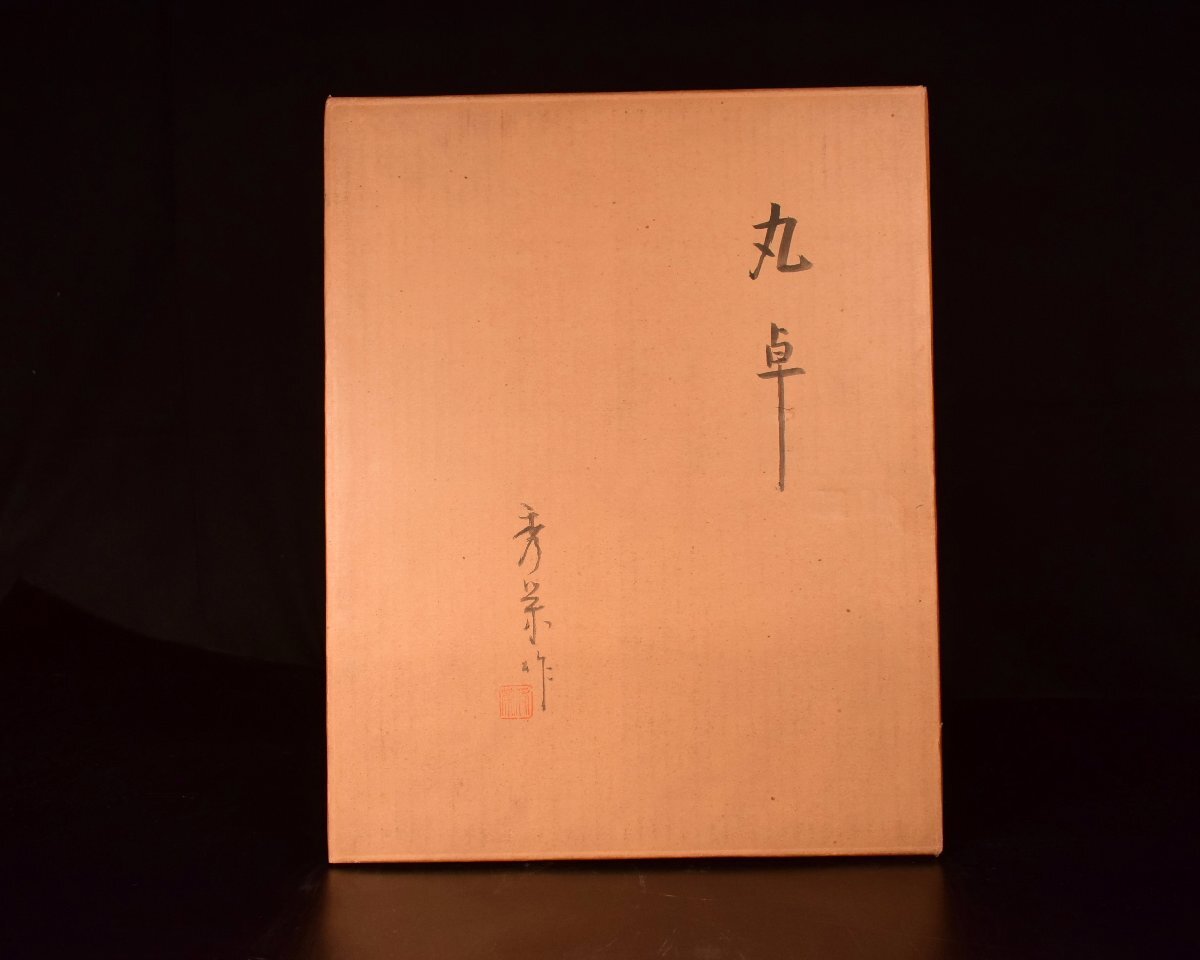 丸卓
秀栄作